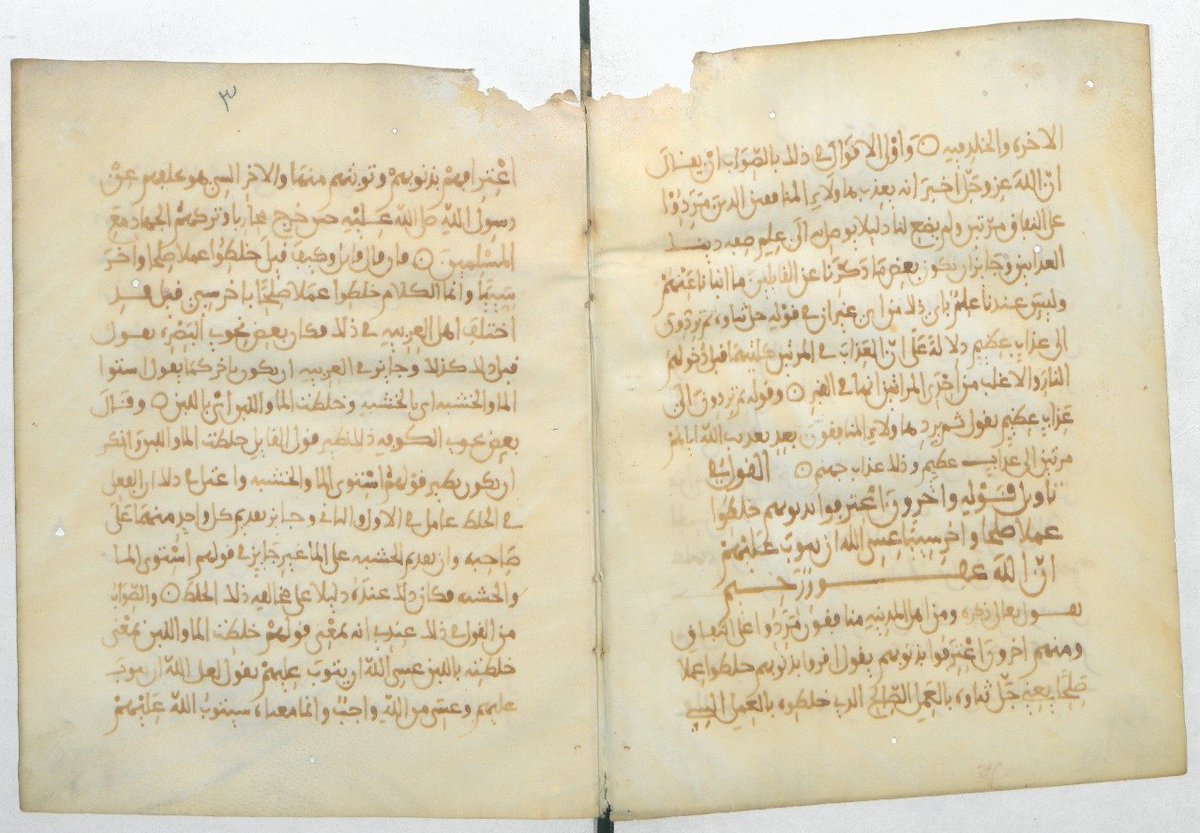 الاخرة والخلد فيه ۝ وأولى الاقوال في ذلك بالصواب ان يقال
ان الله عز وجل أخبر انه يعذب هاولاء المنافقين الذين مردوا
على النفاق مرتين ولم يضع لنا دليلا يوصل به الى علم صفة ذينك
العذابين وجايز ان يكون بعض ما ذكرنا عن القايلين ما انبانا عنهم
وليس عندنا علم باي ذلك من اي غير ان في قوله جل ثناوه ثم يردون
الى عذاب عظيم دلالة على ان العذاب في المرتين كلتيهما قبل دخولهم
النار والاغلب من احدى المرتين انها في القبر ۝ وقوله ثم يردون الى
عذاب عظيم يقول ثم يرد هاولاء المنافقون بعد تعذيب الله اياهم
مرتين الى عذاب عظيم وذلك عذاب جهنم ۝ القول في
تاويل قوله واخرون اعترفوا بذنوبهم خلطوا
عملا صلحا واخر سييا عسى الله ان يتوب عليهم
ان الله غفور رحيم
يقول تعالى ذكره ومن اهل المدينة منافقون مردوا على النفاق
ومنهم اخرون اعترفوا بذنوبهم يقول اقروا بذنوبهم خلطوا عملا
صلحا يعني جل ثناوه بالعمل الصالح الذي خلطوه بالعمل السيي
٣
اعترافهم بذنوبهم وتوبتهم منها والاخر السيي هو تخلفهم عن
رسول الله صلى الله عليه حين خرج غازيا وتركهم الجهاد مع
المسلمين ۝ فان قال قايل وكيف قيل خلطوا عملا صلحا واخر
سييا وانما الكلام خلطوا عملا صلحا باخر سيي قيل قد
اختلف اهل العربية في ذلك فكان بعض نحويي البصرة يقول
قيل ذلك كذلك وجايز في العربية ان يكون باخر كما يقول استوا
الما والخشبة اي بالخشبة وخلطت الما واللبن اي باللبن ۝ وقال
بعض نحويي الكوفة ذلك نظير قول القايل خلطت الما واللبن وانكر
ان يكون نظير قولهم استوى الما والخشبة واعتل في ذلك ان الفعل
في الخلط عامل في الاول والثاني وجايز تقديم كل واحد منهما على
صاحبه وان تقديم الخشبة على الما غير جايز في قولهم استوى الما
والخشبة فكان ذلك عنده دليلا على مخالفة ذلك الخلط ۝ والصواب
من القول في ذلك عندي انه بمعنى قولهم خلطت الما واللبن بمعنى
خلطته باللبن عسى الله ان يتوب عليهم يقول لعل الله ان يتوب
عليهم وعسى من الله واجب وانما معناه سيتوب الله عليهم